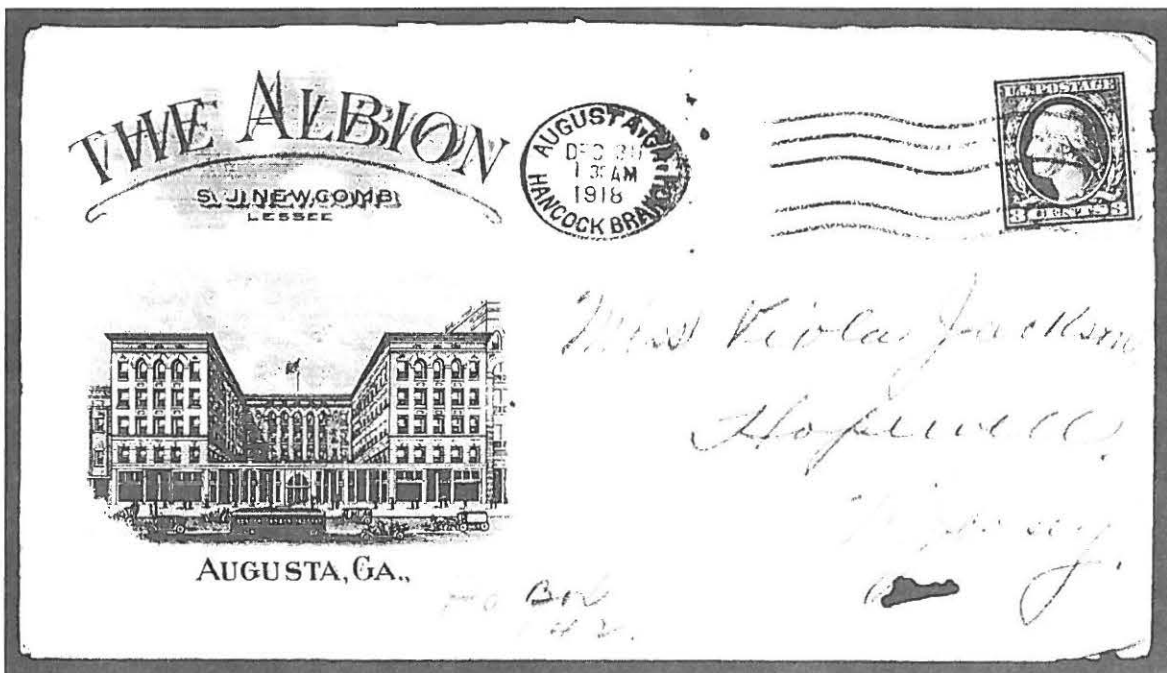 THE ALBION
S. J. NEWCOMB
LESSEE
AUGUSTA, GA.
DEC 30
AM
1918
HANCOCK BRANCH
U.S. POSTAGE
3 CENTS 3
Miss Viola Jackson
Hopewell
Jersey.
AUGUSTA, GA.,
Box
42.